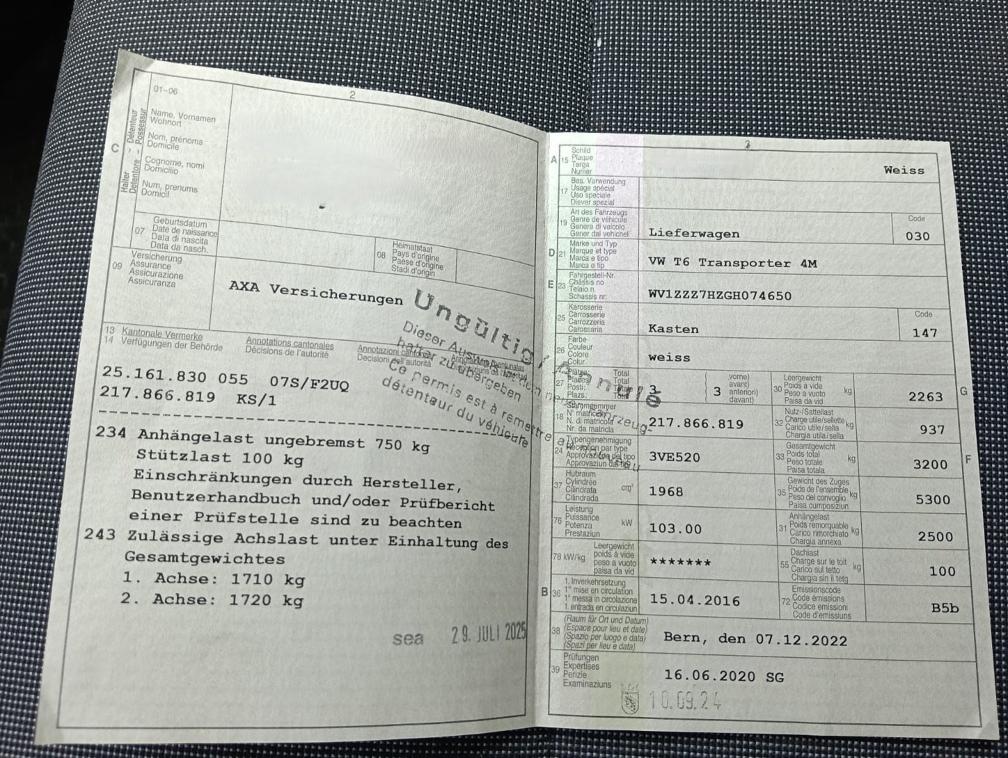 2
01-06
Name, Vornamen
Wohnort
Nom, prénoms
Domicile
Cognome, nomi
Domicilio
Num, prenums
Domicil
C
Halter - Détenteur
Detentore - Possessur
07
Geburtsdatum
Date de naissance
Data di nascita
Data da nasch.
08
Heimatstaat
Pays d'origine
Paese d'origine
Stadi d'origin
09
Versicherung
Assurance
Assicurazione
Assicuranza
AXA Versicherungen
Ungültig / Annulé
Dieser Ausweis ist dem neuen Fahrzeug-
halter zu übergeben
Ce permis est à remettre au nouveau
détenteur du véhicule
13 Kantonale Vermerke
14 Verfügungen der Behörde
Annotations cantonales
Décisions de l'autorité
25.161.830 055 07S/F2UQ
217.866.819 KS/1
234 Anhängelast ungebremst 750 kg
Stützlast 100 kg
Einschränkungen durch Hersteller,
Benutzerhandbuch und/oder Prüfbericht
einer Prüfstelle sind zu beachten
243 Zulässige Achslast unter Einhaltung des
Gesamtgewichtes
1. Achse: 1710 kg
2. Achse: 1720 kg
sea 29. JULI 2025
3
A 15 Schild
Plaque
Targa
Numer
Weiss
17 Bes. Verwendung
Usage spécial
Uso speciale
Diever spezial
19 Art des Fahrzeugs
Genre de véhicule
Genere di veicolo
Gener dal vehichel
Lieferwagen
Code
030
D 21 Marke und Typ
Marque et type
Marca e tipo
Marca e tip
VW T6 Transporter 4M
E 23 Fahrgestell-Nr.
Châssis no
Telaio n.
Schassis nr.
WV1ZZZ7HZGH074650
25 Karosserie
Carrosserie
Carrozzeria
Carossaria
Kasten
Code
147
26 Farbe
Couleur
Colore
Colur
weiss
27 Plätze
Places
Posti
Plazs.
Total
Total
3
3
vorne)
avant)
anteriori)
davant)
30 Leergewicht
Poids à vide
Peso a vuoto
Paisa da vid
kg
2263
G
18 Stammnummer
N° matricule
N. di matricola
Nr. da matricla
217.866.819
32 Nutz-/Sattellast
Charge utile/sellette
Carico utile/sella
Chargia utila/sella
kg
937
24 Typengenehmigung
Réception par type
Approvazione del tipo
Approvaziun dal tip
3VE520
33 Gesamtgewicht
Poids total
Peso totale
Paisa totala
kg
3200
F
37 Hubraum
Cylindrée
Cilindrata
Cilindrada
cm³
1968
35 Gewicht des Zuges
Poids de l'ensemble
Peso del convoglio
Paisa cumposiziun
kg
5300
76 Leistung
Puissance
Potenza
Prestaziun
kW
103.00
31 Anhängelast
Poids remorquable
Carico rimorchiato
Chargia annexa
kg
2500
78 kW/kg
Leergewicht
poids à vide
peso a vuoto
paisa da vid
*******
55 Dachlast
Charge sur le toit
Carico sul tetto
Chargia sin il tetg
kg
100
B 36 1. Inverkehrsetzung
1re mise en circulation
1a messa in circolazione
1. entrada en circulaziun
15.04.2016
72 Emissionscode
Code émissions
Codice emissioni
Code d'emissiuns
B5b
38 (Raum für Ort und Datum)
(Espace pour lieu et date)
(Spazio per luogo e data)
(Spazi per lieu e data)
Bern, den 07.12.2022
39 Prüfungen
Expertises
Perizie
Examinaziuns
16.06.2020 SG
10.09.24